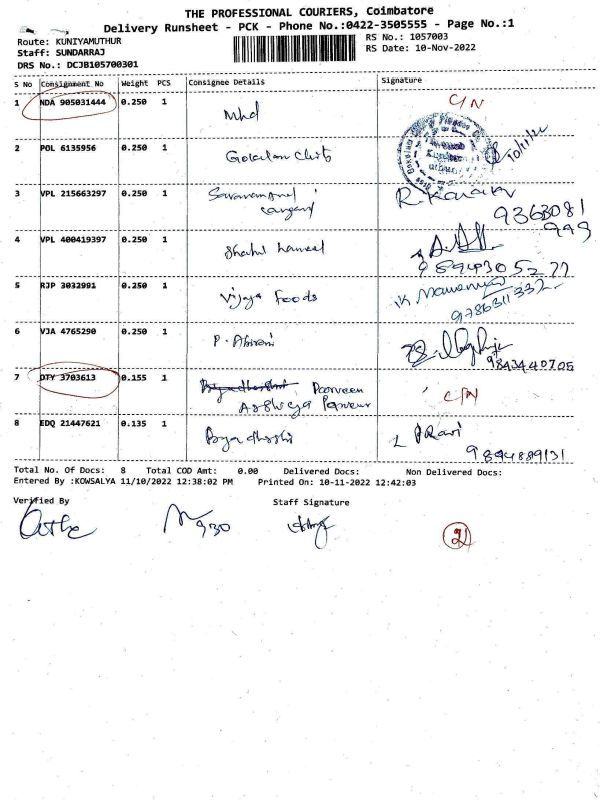 THE PROFESSIONAL COURIERS, Coimbatore
Delivery Runsheet - PCK - Phone No.:0422-3505555 - Page No.:1
Route: KUNIYAMUTHUR
RS No.: 1057003
Staff: SUNDARRAJ
RS Date: 10-Nov-2022
DRS No.: DCJB105700301
S No Consignment No Weight PCS Consignee Details Signature
1 NDA 905031444 0.250 1 C/N
2 POL 6135956 0.250 1 10/11/22
3 VPL 215663297 0.250 1
9363081
993
4 VPL 400419397 0.250 1 Shahul hameed
9894305277
5 RJP 3032991 0.250 1 Vijaya Foods
9786311332
6 VJA 4765290 0.250 1 P. Abirami
9843440705
7 DTY 3703613 0.155 1 Parveen C/N
8 EDQ 21447621 0.135 1 Ravi
9894889131
Total No. Of Docs: 8 Total COD Amt: 0.00 Delivered Docs: Non Delivered Docs:
Entered By :KOWSALYA 11/10/2022 12:38:02 PM Printed On: 10-11-2022 12:42:03
Verified By Staff Signature
930
2